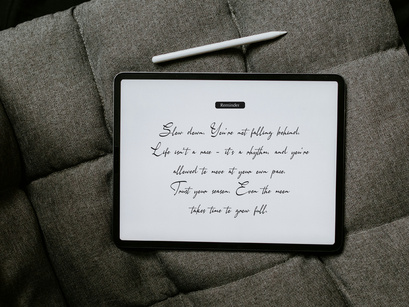 Reminder
Slow down. You're not falling behind.
Life isn't a race - it's a rhythm, and you're
allowed to move at your own pace.
Trust your season. Even the moon
takes time to grow full.